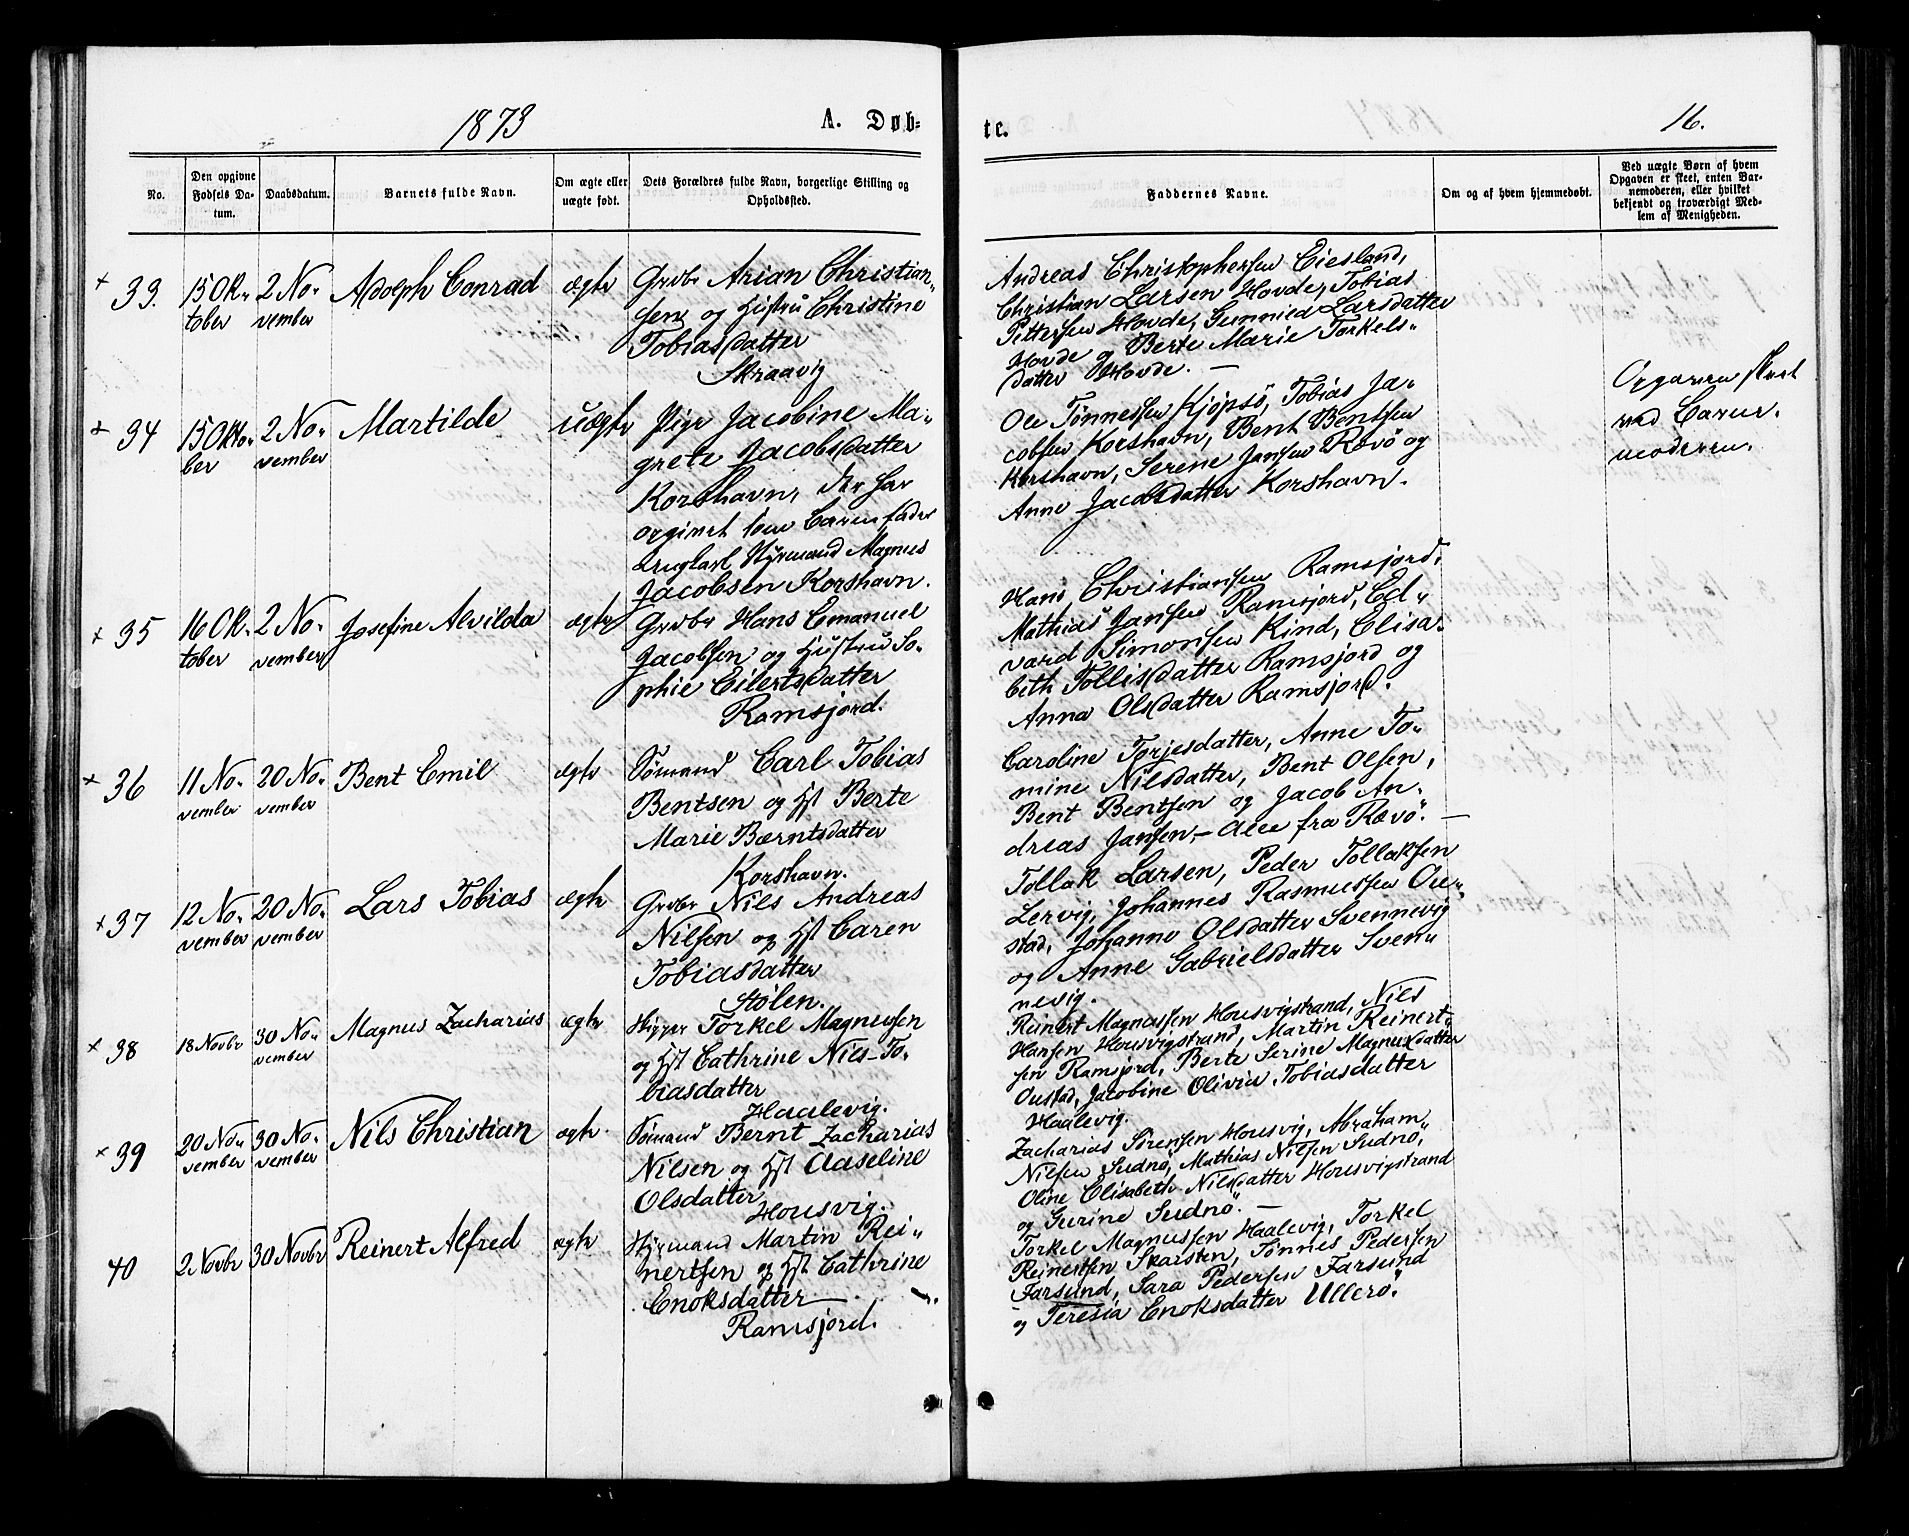 1873
A. Døb-
te.
16.
No.
Den opgivne
Fødsels Da-
tum.
Daabsdatum.
Barnets fulde Navn.
Om ægte eller
uægte født.
Dets Forældres fulde Navn, borgerlige Stilling og
Opholdssted.
Faddernes Navne.
Om og af hvem hjemmedøbt.
Ved uægte Børn af hvem
Opgaven er skeet, enten Bar-
nemoderen, eller hvilket
bekjendt og troværdigt Med-
lem af Menigheden.
+ 33.
15 Ok-
tober
2 No-
vember
Adolph Conrad
ægte
Grdbr Arian Christian-
sen og Hustru Christine
Tobiasdatter
Skraavig
Andreas Christophersen Eiesland,
Christian Larsen Hovde, Tobias
Pettersen Hovde, Gunnied Larsdatter
Hovde og Berte Marie Torkels-
datter Hovde. —
+ 34
15 Okto-
ber
2 No-
vember
Martilde
uægte
Pige Jacobine Ma-
grete Jacobsdatter
Korshavn, der har
opgivet som Barnefader
ungkarl Styrmand Magnus
Jacobsen Korshavn.
Ole Tønnessen Kjøpsö, Tobias Ja-
cobsen Korshavn, Bent Bentsen
Korshavn, Serene Jansen Rævö og
Anne Jacobsdatter Korshavn.
Opgaven skeet
ved Barne-
moderen.
+ 35
16 Ok-
tober
2 No-
vember
Josefine Alvilda
ægte
Grdbr Hans Emanuel
Jacobsen og Hustru So-
phie Eilertsdatter
Ramsjord.
Hans Christiansen Ramsjord,
Mathias Jansen Ramsjord, Ed-
vard Simonsen Kind, Elisa-
beth Tollisdatter Ramsjord og
Anna Olsdatter Ramsjord.
+ 36
11 No-
vember
20 No-
vember
Bent Emil
ægte
Sømand Carl Tobias
Bentsen og Hst Berte
Marie Bærntsdatter
Korshavn.
Caroline Torjesdatter, Anne To-
mine Nilsdatter, Bent Olsen,
Bent Bentsen og Jacob An-
dreas Jansen, — Alle fra Rævö. —
+ 37
12 No-
vember
20 No-
vember
Lars Tobias
ægte
Grdbr Nils Andreas
Nilsen og Hst Caren
Tobiasdatter
Stølen.
Tollak Larsen, Peder Tollaksen
Lervig, Johannes Rasmussen Ou-
stad, Johanne Olsdatter Svennevig
og Anne Gabrielsdatter Sven-
nevig.
+ 38
18 Novbr
30 No-
vember
Magnus Zacharias
ægte
Skipper Torkel Magnussen
og Hst Cathrine Nils-To-
biasdatter
Haalevig.
Reinert Magnussen Housvigstrand, Nils
Hansen Housvigstrand, Martin Reinert-
sen Ramsjord, Berte Serine Magnusdatter
Oustad, Jacobine Olivia Tobiasdatter
Haalevig.
+ 39
20 No-
vember
30 No-
vember
Nils Christian
ægte.
Sømand Bernt Zacharias
Nilsen og Hst Aaseline
Olsdatter
Housvig.
Zacharias Sørensen Housvig, Abraham
Nilsen Sudnø, Mathias Nilsen Sudnø,
Oline Elisabeth Nilsdatter Housvigstrand
og Gurine Sudnø. —
40
2 Novbr
30 Novbr
Reinert Alfred
ægte
Styrmand Martin Rei-
nertsen og Hst Cathrine
Enoksdatter
Ramsjord.
Torkel Magnussen Haalevig, Torkel
Reinertsen Skarsten, Tønnes Pedersen
Farsund, Sara Pedersen Farsund
og Teresia Enoksdatter Ullerö.